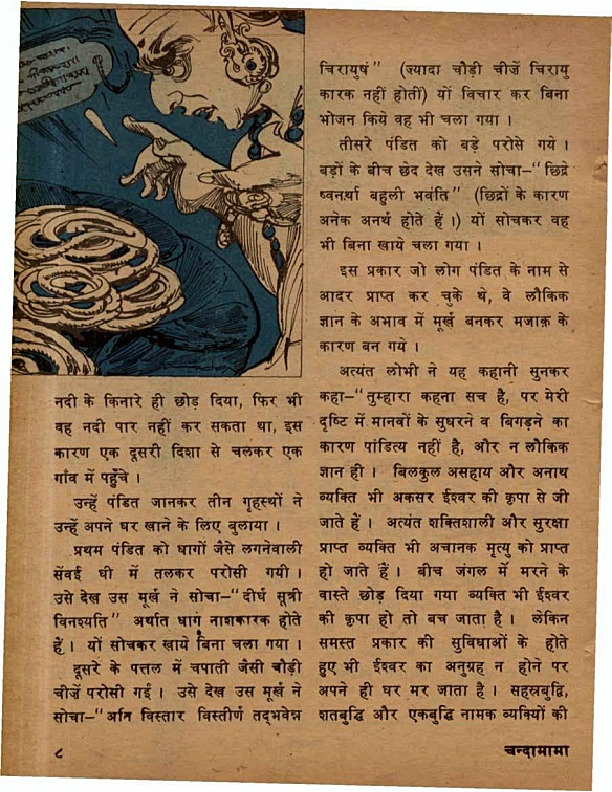 नदी के किनारे ही छोड़ दिया, फिर भी
वह नदी पार नहीं कर सकता था, इस
कारण एक दूसरी दिशा से चलकर एक
गाँव में पहुँचे ।
उन्हें पंडित जानकर तीन गृहस्थों ने
उन्हें अपने घर खाने के लिए बुलाया ।
प्रथम पंडित को धागों जैसे लगनेवाली
सेंवई घी में तलकर परोसी गयी ।
उसे देख उस मूर्ख ने सोचा–"दीर्घ सूत्री
विनश्यति" अर्थात धागे नाशकारक होते
हैं । यों सोचकर खाये बिना चला गया ।
दूसरे के पत्तल में चपाती जैसी चौड़ी
चीज़ें परोसी गईं । उसे देख उस मूर्ख ने
सोचा–"अति विस्तार विस्तीर्ण तद्भवेन्न
चिरायुषं" (ज्यादा चौड़ी चीजें चिरायु
कारक नहीं होतीं) यों विचार कर बिना
भोजन किये वह भी चला गया ।
तीसरे पंडित को बड़े परोसे गये ।
बड़ों के बीच छेद देख उसने सोचा–"छिद्रे
ष्वनर्था बहुली भवंति" (छिद्रों के कारण
अनेक अनर्थ होते हैं ।) यों सोचकर वह
भी बिना खाये चला गया ।
इस प्रकार जो लोग पंडित के नाम से
आदर प्राप्त कर चुके थे, वे लौकिक
ज्ञान के अभाव में मूर्ख बनकर मजाक़ के
कारण बन गये ।
अत्यंत लोभी ने यह कहानी सुनकर
कहा–"तुम्हारा कहना सच है, पर मेरी
दृष्टि में मानवों के सुधरने व बिगड़ने का
कारण पांडित्य नहीं है, और न लौकिक
ज्ञान ही । बिलकुल असहाय और अनाथ
व्यक्ति भी अकसर ईश्वर की कृपा से जी
जाते हैं । अत्यंत शक्तिशाली और सुरक्षा
प्राप्त व्यक्ति भी अचानक मृत्यु को प्राप्त
हो जाते हैं । बीच जंगल में मरने के
वास्ते छोड़ दिया गया व्यक्ति भी ईश्वर
की कृपा हो तो बच जाता है । लेकिन
समस्त प्रकार की सुविधाओं के होते
हुए भी ईश्वर का अनुग्रह न होने पर
अपने ही घर मर जाता है । सहस्रबुद्धि,
शतबुद्धि और एकबुद्धि नामक व्यक्तियों की
८
चन्दामामा